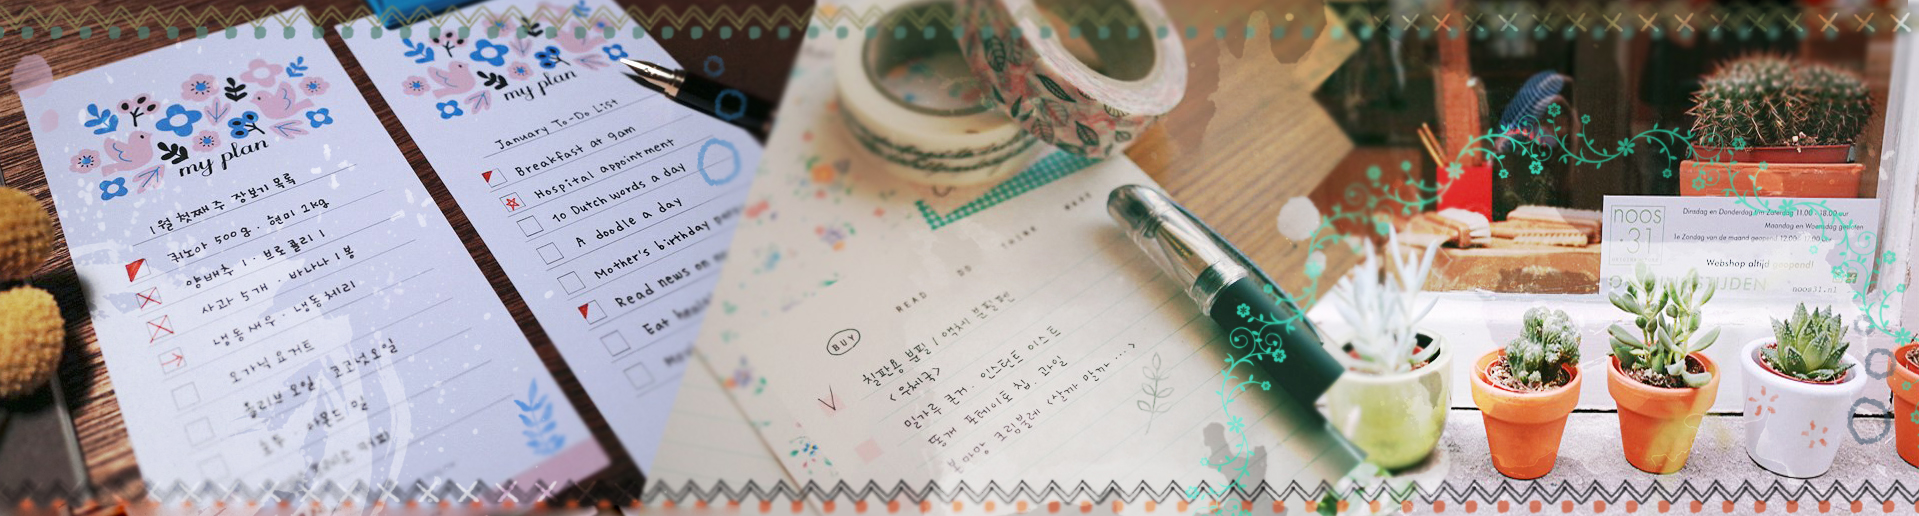 my plan
1월 첫째 주 장보기 목록
퀴노아 500g. 현미 2kg
양배추 1. 브로콜리 1
사과 5개. 바나나 1봉
냉동새우. 냉동체리
오가닉 요거트
올리브 오일. 코코넛오일
my plan
January To-Do List
Breakfast at 9am
Hospital appointment
10 Dutch words a day
A doodle a day
Mother's birthday
Read news on
Eat
MAKE
THINK
DO
READ
BUY
칠판용 분필 / 액체 분필펜
<우체국>
밀가루 혼거. 인스턴트 이스트
포테이토 칩. 과일
크림블레 <살까 말까....>
noos
31
Dinsdag en Donderdag t/m Zaterdag 11.00 - 18.00 uur
Maandag en Woensdag gesloten
1e Zondag van de maand geopend 12.00 - 17.00 uur
Webshop altijd geopend!
OPENINGSTIJDEN
noos31.nl